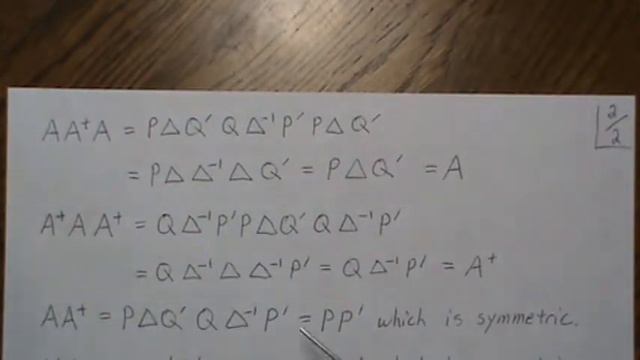 2/2
AA⁺A = PΔQ′QΔ⁻¹P′PΔQ′
= PΔΔ⁻¹ΔQ′ = PΔQ′ = A
A⁺AA⁺ = QΔ⁻¹P′PΔQ′QΔ⁻¹P′
= QΔ⁻¹ΔΔ⁻¹P′ = QΔ⁻¹P′ = A⁺
AA⁺ = PΔQ′QΔ⁻¹P′ = PP′ which is symmetric.